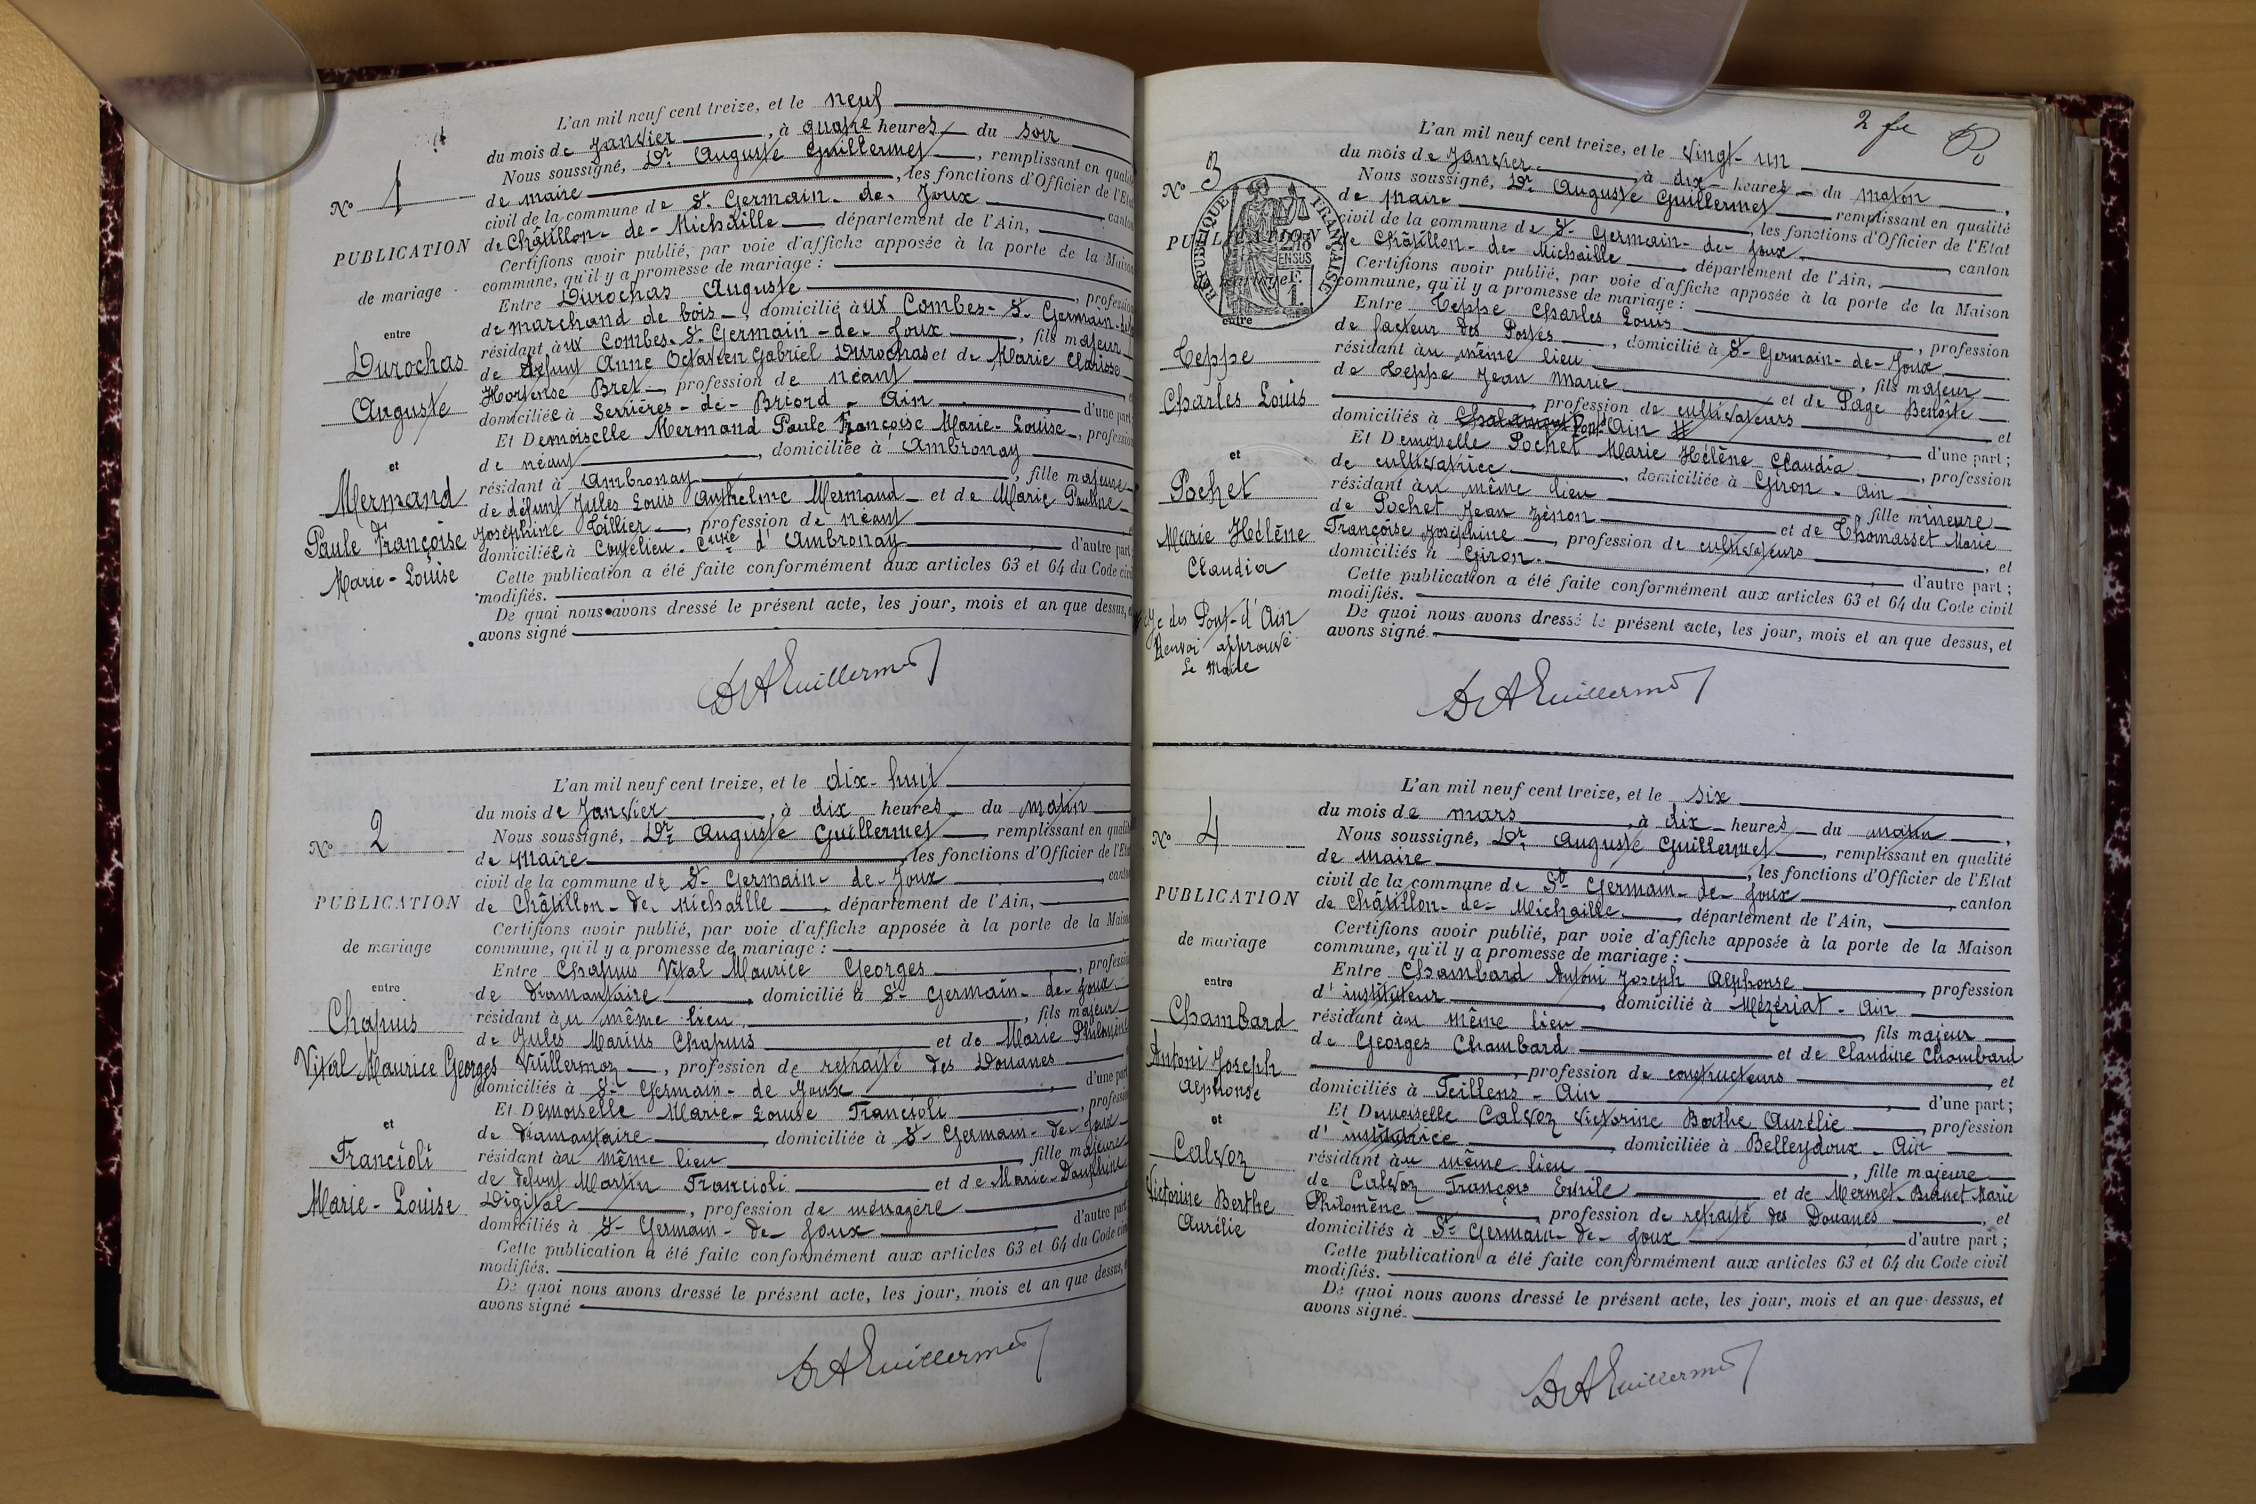 L'an mil neuf cent treize, et le neuf
du mois de Janvier, à quatre heures du soir
Nous soussigné, Dr Auguste Guillermet, remplissant en qualité
de maire, les fonctions d'Officier de l'Etat
civil de la commune de St Germain-de-Joux, canton
de Châtillon-de-Michaille département de l'Ain,
Certifions avoir publié, par voie d'affiche apposée à la porte de la Maison
commune, qu'il y a promesse de mariage :
Entre Durochas Auguste, profession
de marchand de bois, domicilié aux Combes-St Germain-de-
résidant aux Combes-St Germain-de-Joux, fils majeur
de défunt Anne Octavien Gabriel Durochas et de Marie Clarisse
Hortense Bret, profession de néant
domiciliée à Serrières-de-Briord-Ain d'une part
Et Demoiselle Mermand Paule Françoise Marie-Louise, profession
de néant, domiciliée à Ambronay
résidant à Ambronay, fille majeure
de défunt Jules Louis Anthelme Mermand et de Marie Pauline
Joséphine Tillier, profession de néant
domiciliée à Coutelieu-Cune d'Ambronay d'autre part
Cette publication a été faite conformément aux articles 63 et 64 du Code civil
modifiés.
De quoi nous avons dressé le présent acte, les jour, mois et an que dessus, et
avons signé
Dr A Guillermet
No 1
PUBLICATION
de mariage
entre
Durochas
Auguste
et
Mermand
Paule Françoise
Marie-Louise
L'an mil neuf cent treize, et le dix-huit
du mois de Janvier, à dix heures du matin
Nous soussigné, Dr Auguste Guillermet remplissant en qualité
de Maire, les fonctions d'Officier de l'Etat
civil de la commune de St Germain-de-Joux, canton
de Châtillon-de-Michaille, département de l'Ain,
Certifions avoir publié, par voie d'affiche apposée à la porte de la Maison
commune, qu'il y a promesse de mariage :
Entre Chapuis Vital Maurice Georges, profession
de Diamantaire, domicilié à St Germain-de-Joux
résidant au même lieu, fils majeur
de Jules Marius Chapuis et de Marie Philomène
Vuillermoz, profession de retraité des Douanes
domiciliés à St Germain-de Joux d'une part
Et Demoiselle Marie-Louise Francioli, profession
de diamantaire, domiciliée à St Germain-de-Joux
résidant au même lieu, fille majeure
de defunt Martin Francioli et de Marie-Dauphine
Digital, profession de ménagère
domiciliés à St Germain-de-Joux d'autre part
Cette publication a été faite conformément aux articles 63 et 64 du Code civil
modifiés.
De quoi nous avons dressé le présent acte, les jour, mois et an que dessus, et
avons signé
Dr A Guillermet
No 2
PUBLICATION
de mariage
entre
Chapuis
Vital Maurice Georges
et
Francioli
Marie-Louise
2 fe
L'an mil neuf cent treize, et le vingt-un
du mois de Janvier, à dix heures du matin,
Nous soussigné, Dr Auguste Guillermet remplissant en qualité
de Maire, les fonctions d'Officier de l'Etat
civil de la commune de St Germain-de-Joux, canton
de Châtillon-de-Michaille, département de l'Ain,
Certifions avoir publié, par voie d'affiche apposée à la porte de la Maison
commune, qu'il y a promesse de mariage :
Entre Teppe Charles Louis, profession
de facteur des Postes, domicilié à St Germain-de-Joux
résidant au même lieu, fils majeur
de Teppe Jean Marie et de Page Benoîte
, profession de cultivateurs et
domiciliés à Pont Ain d'une part ;
Et Demoiselle Pochet Marie Hélène Claudia, profession
de cultivatrice, domiciliée à Giron-Ain
résidant au même lieu, fille mineure
de Pochet Jean Zénon et de Thomasset Marie
Françoise Joséphine, profession de cultivateurs, et
domiciliés à Giron d'autre part ;
Cette publication a été faite conformément aux articles 63 et 64 du Code civil
modifiés.
De quoi nous avons dressé le présent acte, les jour, mois et an que dessus, et
avons signé.
Dr A Guillermet
No 3
RÉPUBLIQUE FRANÇAISE
PUBLICATION
de mariage
entre
Teppe
Charles Louis
et
Pochet
Marie Hélène
Claudia
Pont-d'Ain
Renvoi approuvé
Le Maire
L'an mil neuf cent treize, et le six
du mois de mars, à dix heures du matin,
Nous soussigné, Dr Auguste Guillermet, remplissant en qualité
de maire, les fonctions d'Officier de l'Etat
civil de la commune de St Germain-de-Joux, canton
de Châtillon-de-Michaille, département de l'Ain,
Certifions avoir publié, par voie d'affiche apposée à la porte de la Maison
commune, qu'il y a promesse de mariage :
Entre Chambard Antoni Joseph Alphonse, profession
d'instituteur, domicilié à Mézériat-Ain
résidant au même lieu, fils majeur
de Georges Chambard et de Claudine Chambard
, profession de constructeurs, et
domiciliés à Peillens-Ain, d'une part ;
Et Demoiselle Calvoz Victorine Berthe Aurélie, profession
d'institutrice, domiciliée à Belleydoux-Ain
résidant au même lieu, fille majeure
de Calvoz François Emile et de Mermet-Burnet Marie
Philomène, profession de retraité des Douanes, et
domiciliés à St Germain-de-Joux, d'autre part ;
Cette publication a été faite conformément aux articles 63 et 64 du Code civil
modifiés.
De quoi nous avons dressé le présent acte, les jour, mois et an que dessus, et
avons signé.
Dr A Guillermet
No 4
PUBLICATION
de mariage
entre
Chambard
Antoni Joseph
Alphonse
et
Calvoz
Victorine Berthe
Aurélie